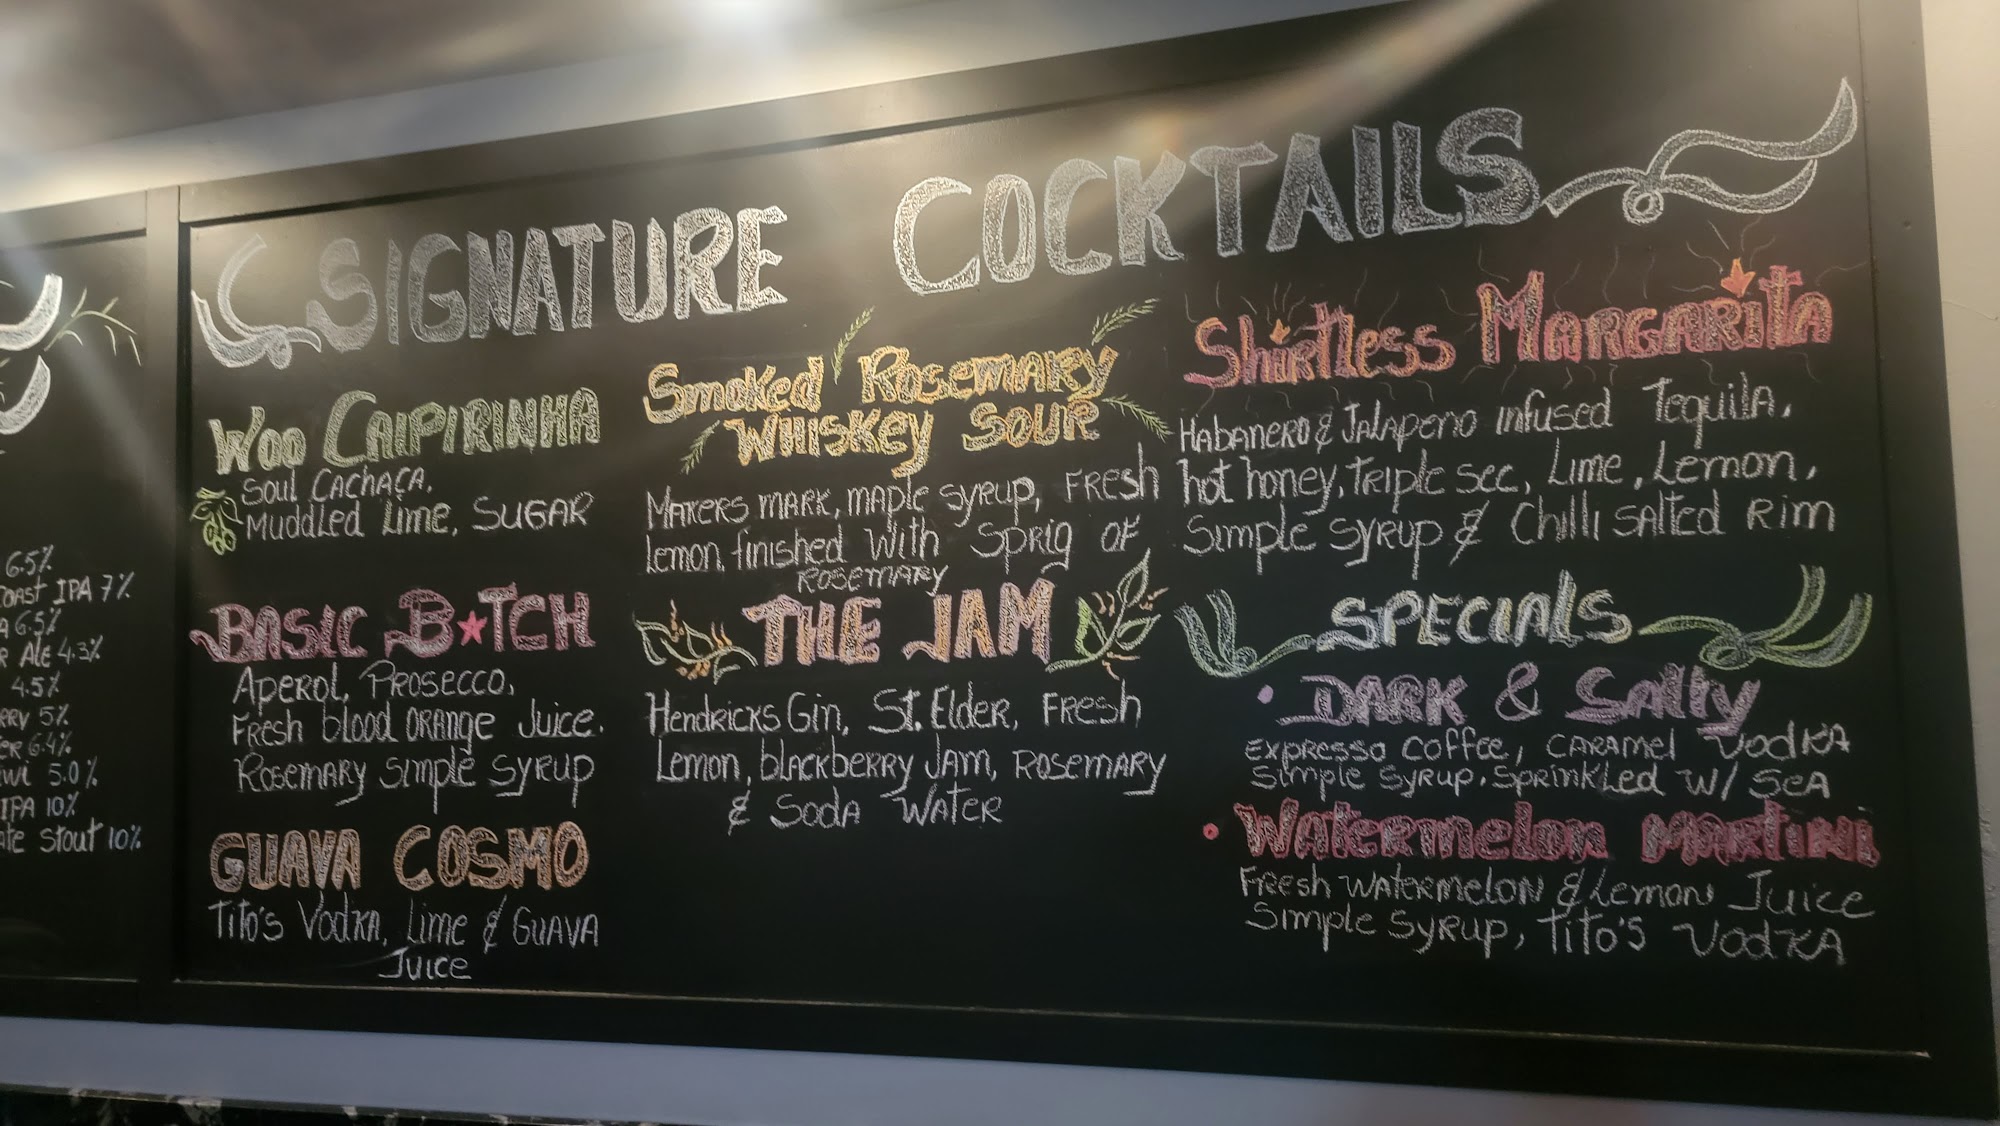 6.5%
OAST IPA 7%
A 6.5%
R ALE 4.3%
4.5%
ERRY 5%
ER 6.4%
IWI 5.0%
IPA 10%
ATE STOUT 10%
SIGNATURE COCKTAILS
WOO CAIPIRINHA
SOUL CACHAÇA,
MUDDLED LIME, SUGAR
BASIC B★TCH
APEROL, PROSECCO,
FRESH BLOOD ORANGE JUICE.
ROSEMARY SIMPLE SYRUP
GUAVA COSMO
TITO'S VODKA, LIME & GUAVA
JUICE
SMOKED ROSEMARY
WHISKEY SOUR
MAKERS MARK, MAPLE SYRUP, FRESH
LEMON, FINISHED WITH SPRIG OF
ROSEMARY
THE JAM
HENDRICKS GIN, ST. ELDER, FRESH
LEMON, BLACKBERRY JAM, ROSEMARY
& SODA WATER
SHIRTLESS MARGARITA
HABANERO & JALAPENO INFUSED TEQUILA,
HOT HONEY, TRIPLE SEC, LIME, LEMON,
SIMPLE SYRUP & CHILLI SALTED RIM
SPECIALS
• DARK & SALTY
EXPRESSO COFFEE, CARAMEL VODKA
SIMPLE SYRUP, SPRINKLED W/ SEA
• WATERMELON MARTINI
FRESH WATERMELON & LEMON JUICE
SIMPLE SYRUP, TITO'S VODKA